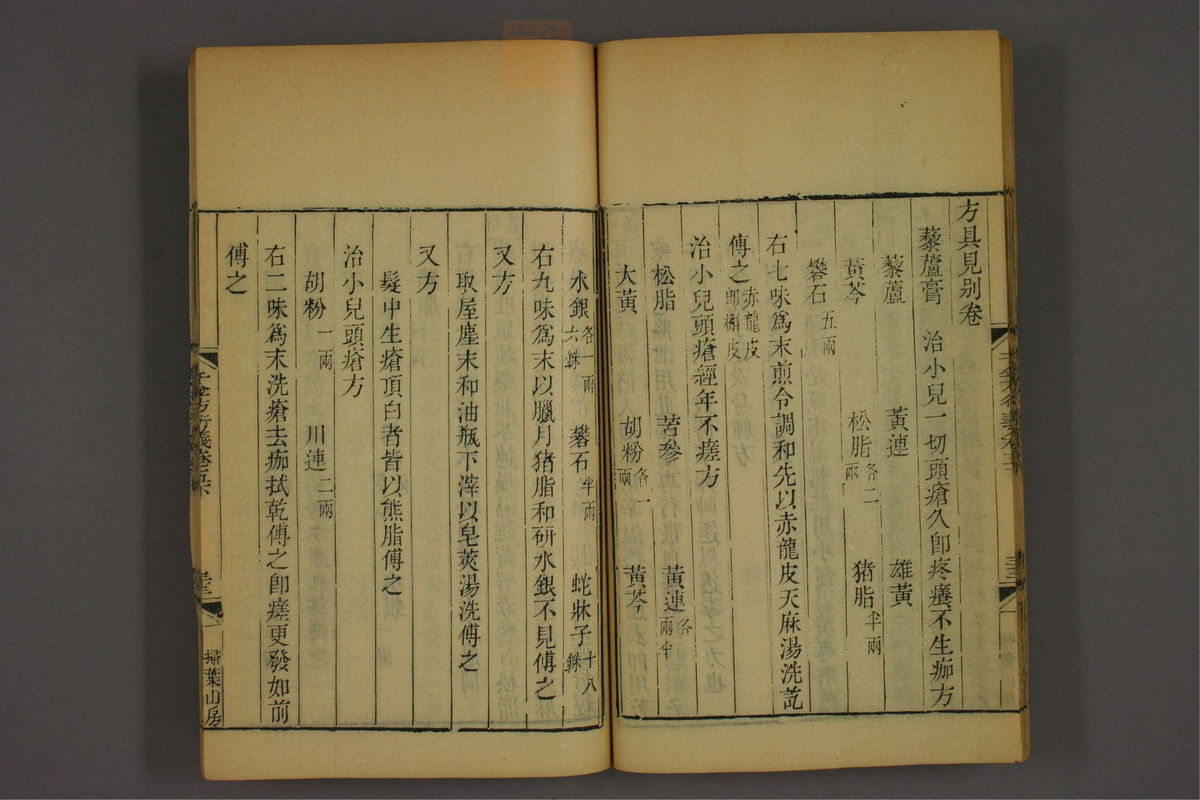 方具見別卷
藜蘆膏 治小兒一切頭瘡久卽疼癢不生痂方
藜蘆 黃連 雄黃
黃芩 松脂各二兩 猪脂半兩
礬石五兩
右七味爲末煎令調和先以赤龍皮天麻湯洗訖
傅之赤龍皮卽槲皮
治小兒頭瘡經年不瘥方
松脂 苦參 黃連各兩半
大黃 胡粉各一兩 黃芩
水銀各一兩六銖 礬石半兩 蛇牀子十八銖
右九味爲末以臘月猪脂和研水銀不見傅之
又方
取屋塵末和油瓶下滓以皂莢湯洗傅之
又方
髮中生瘡頂白者皆以熊脂傅之
治小兒頭瘡方
胡粉一兩 川連二兩
右二味爲末洗瘡去痂拭乾傅之卽瘥更發如前
傅之
千金方衍義卷
掃葉山房